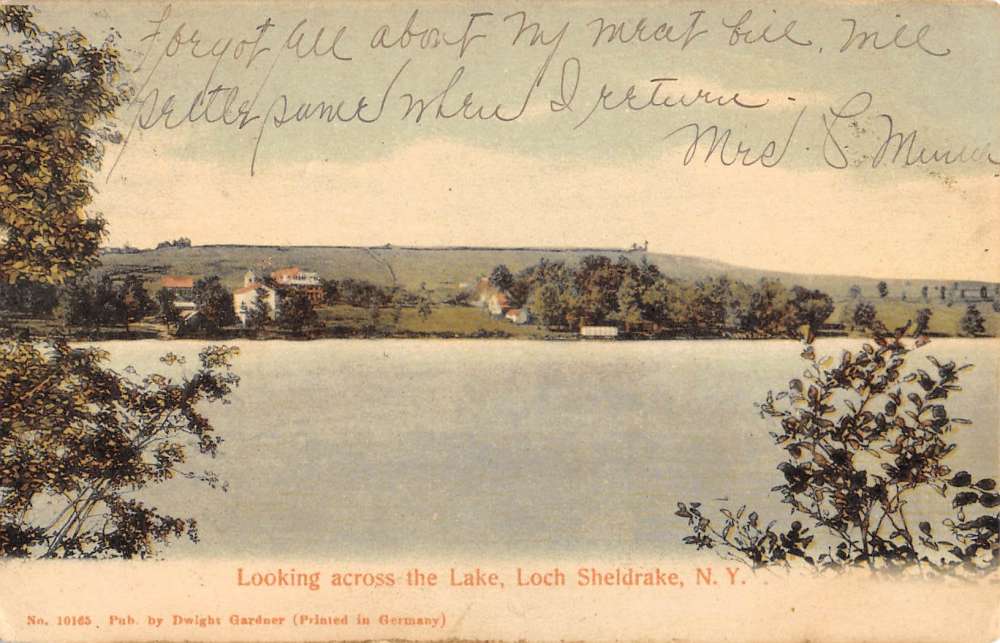 Forgot all about my meat bill, will
settle same when I return.
Mrs. S.
Looking across the Lake, Loch Sheldrake, N. Y.
No. 10165 Pub. by Dwight Gardner (Printed in Germany)